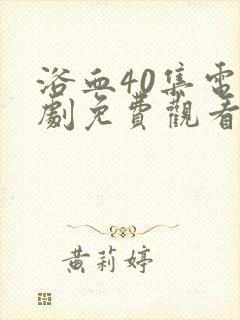 浴血40集電
劇免費觀看
黃莉婷